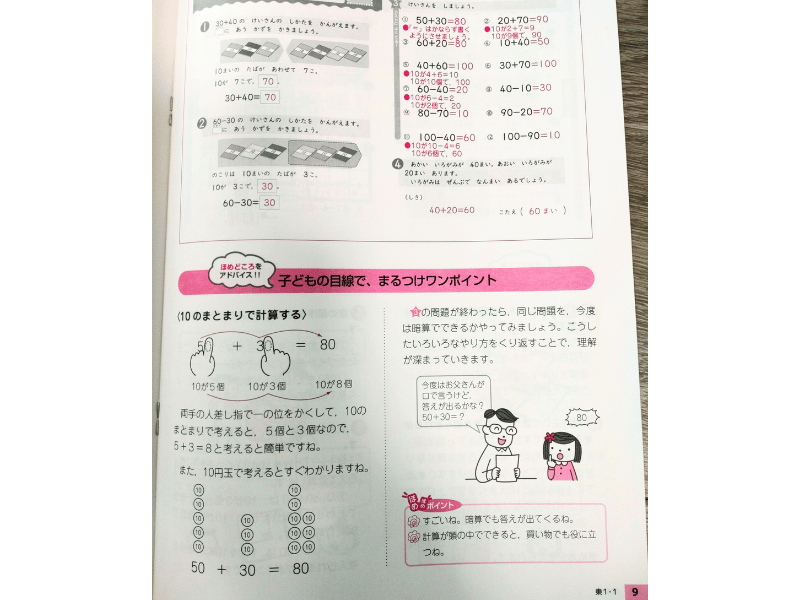 1 30+40の けいさんの しかたを かんがえます。
□に あう かずを かきましょう。
10まいの たばが あわせて 7こ。
10が 7こで、70。
30+40=70
2 60-30の けいさんの しかたを かんがえます。
□に あう かずを かきましょう。
のこりは 10まいの たばが 3こ。
10が 3こで、30。
60-30=30
3 けいさんを しましょう。
① 50+30=80
② 20+70=90
●「=」はかならず書く
ようにさせましょう。
●10が2+7=9
10が9個で、90
③ 60+20=80
④ 10+40=50
⑤ 40+60=100
⑥ 30+70=100
●10が4+6=10
10が10個で、100
⑦ 60-40=20
⑧ 40-10=30
●10が6-4=2
10が2個で、20
⑨ 80-70=10
⑩ 90-20=70
⑪ 100-40=60
⑫ 100-90=10
●10が10-4=6
10が6個で、60
4 あかい いろがみが 40まい、あおい いろがみが
20まい あります。
いろがみは ぜんぶで なんまい あるでしょう。
(しき)
40+20=60
こたえ( 60まい )
ほめどころを
アドバイス!!
子どもの目線で、まるつけワンポイント
〈10のまとまりで計算する〉
50 + 30 = 80
10が5個 10が3個 10が8個
両手の人差し指で一の位をかくして、10の
まとまりで考えると、5個と3個なので、
5+3=8と考えると簡単ですね。
また、10円玉で考えるとすぐわかりますね。
10 10
10 10
10 10 10 10
10 10 10 10
10 10 10 10
50 + 30 = 80
3の問題が終わったら、同じ問題を、今度
は暗算でできるかやってみましょう。こうし
たいろいろなやり方をくり返すことで、理解
が深まっていきます。
今度はお父さんが
口で言うけど、
答えが出るかな?
50+30=?
80
ほめほめポイント
すごいね。暗算でも答えが出てくるね。
計算が頭の中でできると、買い物でも役に立
つね。
東1・1 9